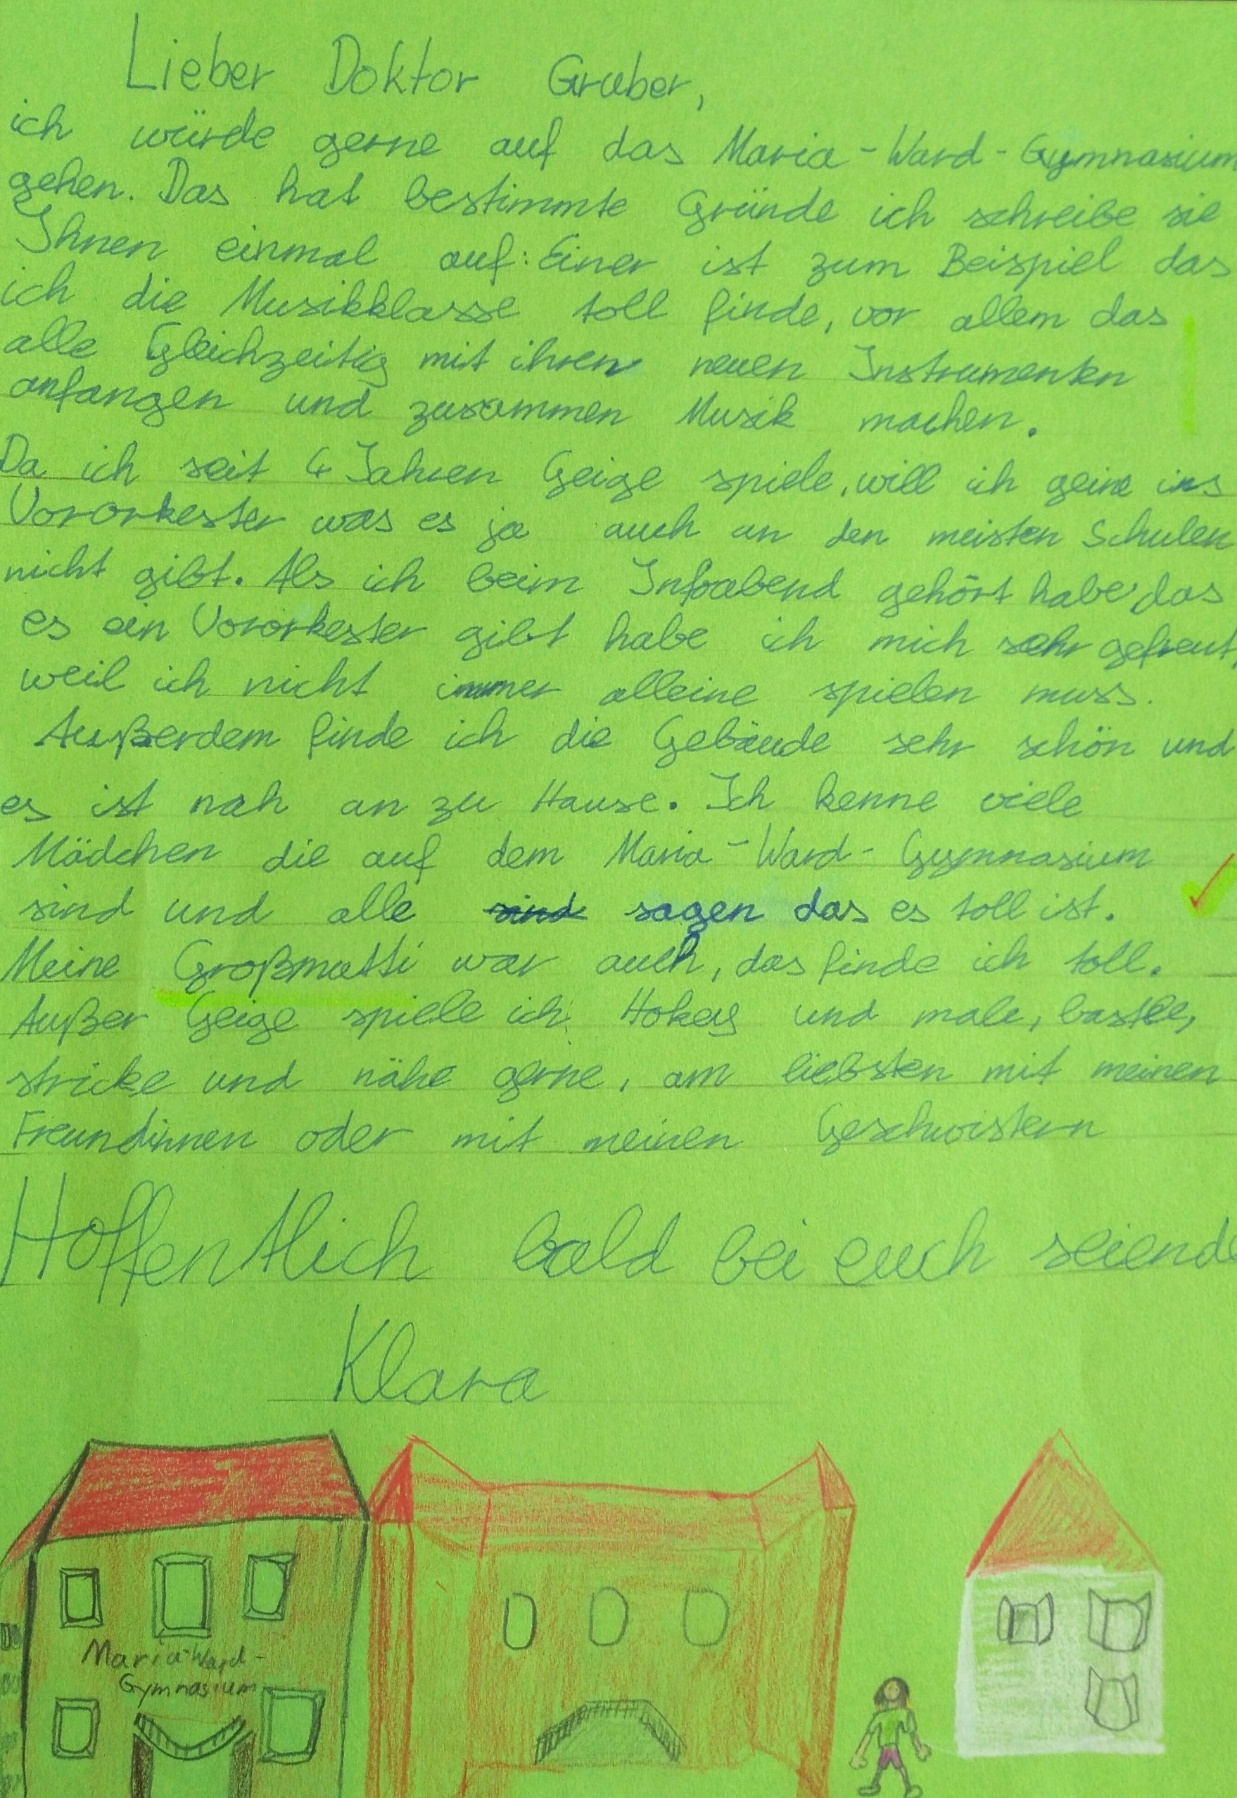 Lieber Doktor Gruber,
ich würde gerne auf das Maria-Ward-Gymnasium
gehen. Das hat bestimmte Gründe ich schreibe sie
Ihnen einmal auf: Einer ist zum Beispiel das
ich die Musikklasse toll finde, vor allem das
alle Gleichzeitig mit ihren neuen Instrumenten
anfangen und zusammen Musik machen.
Da ich seit 4 Jahren Geige spiele, will ich gerne ins
Vororkester was es ja auch an den meisten Schulen
nicht gibt. Als ich beim Infoabend gehört habe das
es ein Vororkester gibt habe ich mich sehr gefreut,
weil ich nicht immer alleine spielen muss.
Außerdem finde ich die Gebäude sehr schön und
es ist nah an zu Hause. Ich kenne viele
Mädchen die auf dem Maria-Ward-Gymnasium
sind und alle sind sagen das es toll ist.
Meine Großmutti war auch, das finde ich toll.
Außer Geige spiele ich Hokey und male, bastle,
stricke und nähe gerne, am liebsten mit meinen
Freundinnen oder mit meinen Geschwistern
Hoffentlich bald bei euch seiende
Klara
Maria-Ward-
Gymnasium